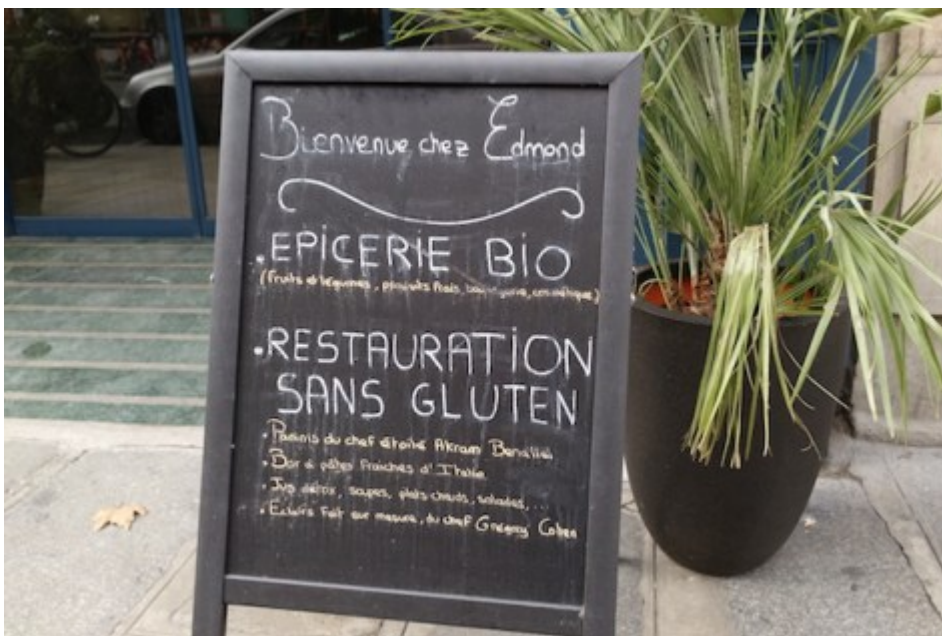 Bienvenue chez Edmond
. EPICERIE BIO
(Fruits et légumes, produits frais, boulangerie, cosmétique)
. RESTAURATION
SANS GLUTEN
. Paninis du chef étoilé Akram Benallal
. Bar à pâtes fraîches d'Italie
. Jus détox, soupes, plats chauds, salades,...
. Eclairs fait sur mesure, du chef Grégory Cohen